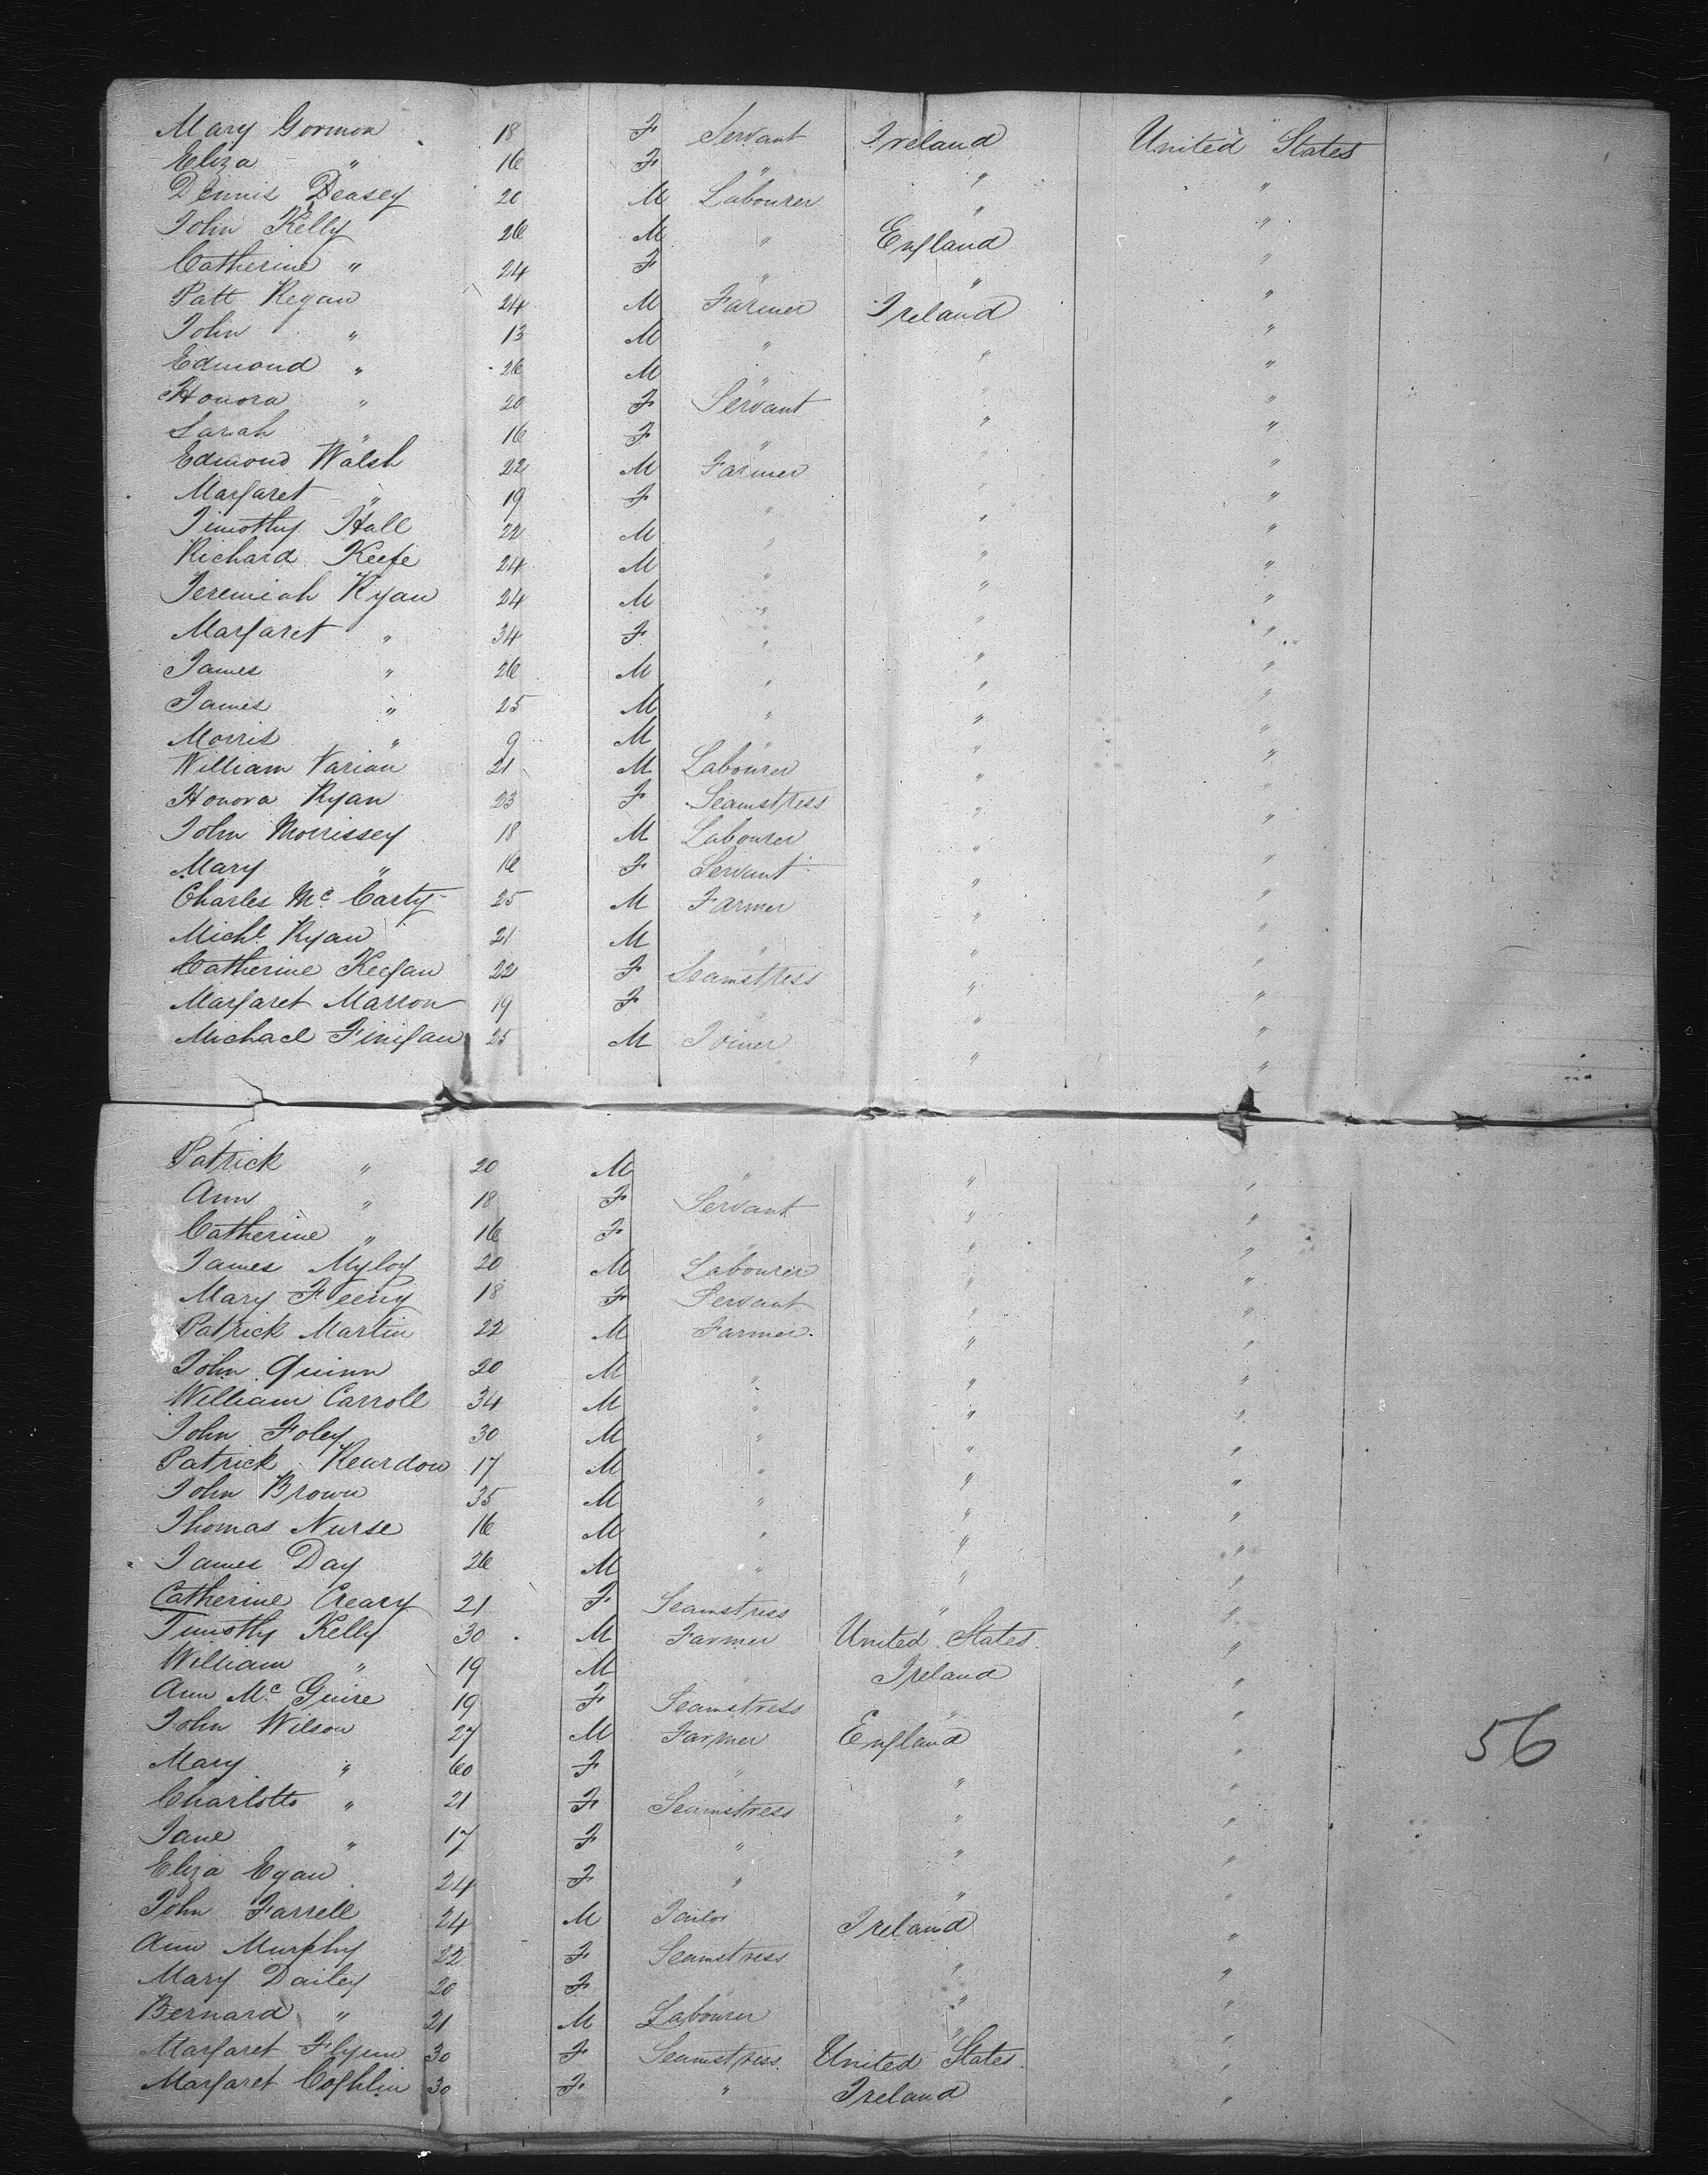 Mary Gormon 18 F Servant Ireland United States
Eliza " 16 F " " "
Dennis Deasey 20 M Labourer " "
John Kelly 26 M " England "
Catherine " 24 F " " "
Patt Regan 24 M Farmer Ireland "
John " 13 M " " "
Edmond " 26 M " " "
Honora " 20 F Servant " "
Sarah " 16 F " " "
Edmond Walsh 22 M Farmer " "
Margaret " 19 F " " "
Timothy Hall 22 M " " "
Richard Keefe 24 M " " "
Jeremiah Ryan 24 M " " "
Margaret " 34 F " " "
James " 26 M " " "
James " 25 M " " "
Morris " 9 M " " "
William Varian 21 M Labourer " "
Honora Ryan 23 F Seamstress " "
John Morrissey 18 M Labourer " "
Mary " 16 F Servant " "
Charles Mc Carty 25 M Farmer " "
Michl Ryan 21 M " " "
Catherine Keegan 22 F Seamstress " "
Margaret Marron 19 F " " "
Michael Finigan 25 M Joiner " "
Patrick " 20 M " " "
Ann " 18 F Servant " "
Catherine " 16 F " " "
James Myloy 20 M Labourer " "
Mary Feeny 18 F Servant " "
Patrick Martin 22 M Farmer " "
John Quinn 20 M " " "
William Carroll 34 M " " "
John Foley 30 M " " "
Patrick Reardon 17 M " " "
John Brown 35 M " " "
Thomas Nurse 16 M " " "
James Day 26 M " " "
Catherine Creary 21 F Seamstress " "
Timothy Kelly 30 M Farmer United States "
William " 19 M " Ireland "
Ann Mc Guire 19 F Seamstress " "
John Wilson 27 M Farmer England "
Mary " 60 F " " "
Charlotte " 21 F Seamstress " "
Jane " 17 F " " "
Eliza Egan 24 F " " "
John Farrell 24 M Tailor Ireland "
Ann Murphy 22 F Seamstress " "
Mary Dailey 20 F " " "
Bernard " 21 M Labourer " "
Margaret Flynn 30 F Seamstress United States "
Margaret Coghlin 30 F " Ireland "
56